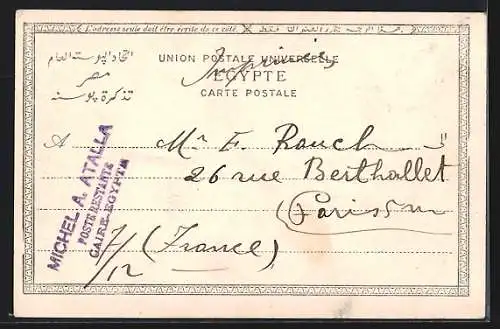 L'adresse seule doit être écrite de ce côté.
اتحاد البوستة العام
مصر
تذكرة بوسته
UNION POSTALE UNIVERSELLE
EGYPTE
CARTE POSTALE
Imprimés
A
Mr F. Rauch
الى
26 rue Berthollet
Paris 5m
(France)
7/12
MICHEL A. ATALLA
POSTE RESTANTE
CAIRE-EGYPTE